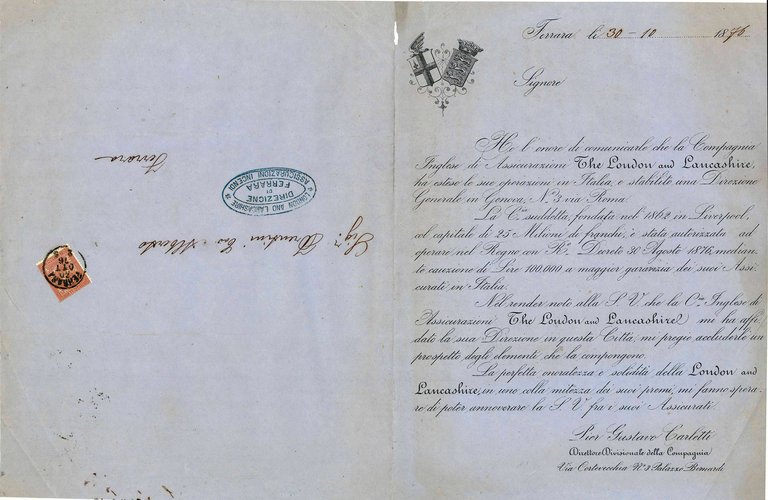 Ferrara li 30-10 1876
Signore
Ho l'onore di comunicarle che la Compagnia
Inglese di Assicurazioni The London and Lancashire,
ha esteso le sue operazioni in Italia, e stabilito una Direzione
Generale in Genova, N. 3 via Roma.
La Cia suddetta, fondata nel 1862 in Liverpool,
col capitale di 25 Milioni di franchi, è stata autorizzata ad
operare nel Regno con Ro. Decreto 30 Agosto 1876, median-
te cauzione di Lire 100,000 a maggior garanzia dei suoi Assi-
curati in Italia.
Nel render noto alla S. V. che la Cia Inglese di
Assicurazioni The London and Lancashire mi ha affi-
dato la sua Direzione in questa Città, mi pregio accluderle un
prospetto degli elementi che la compongono.
La perfetta onoratezza e solidità della London and
Lancashire, in uno colla mitezza dei suoi premi, mi fanno spera-
re di poter annoverare la S. V. fra i suoi Assicurati.
Pier Gustavo Carletti
Direttore Divisionale della Compagnia
Via Cortevecchia No. 3 Palazzo Bernardi
LONDON AND LANCASHIRE
DIREZIONE
DI
FERRARA
ASSICURAZIONI INCENDI
Sigr.
Alberto
Ferrara
FERRARA
30
OTT
76